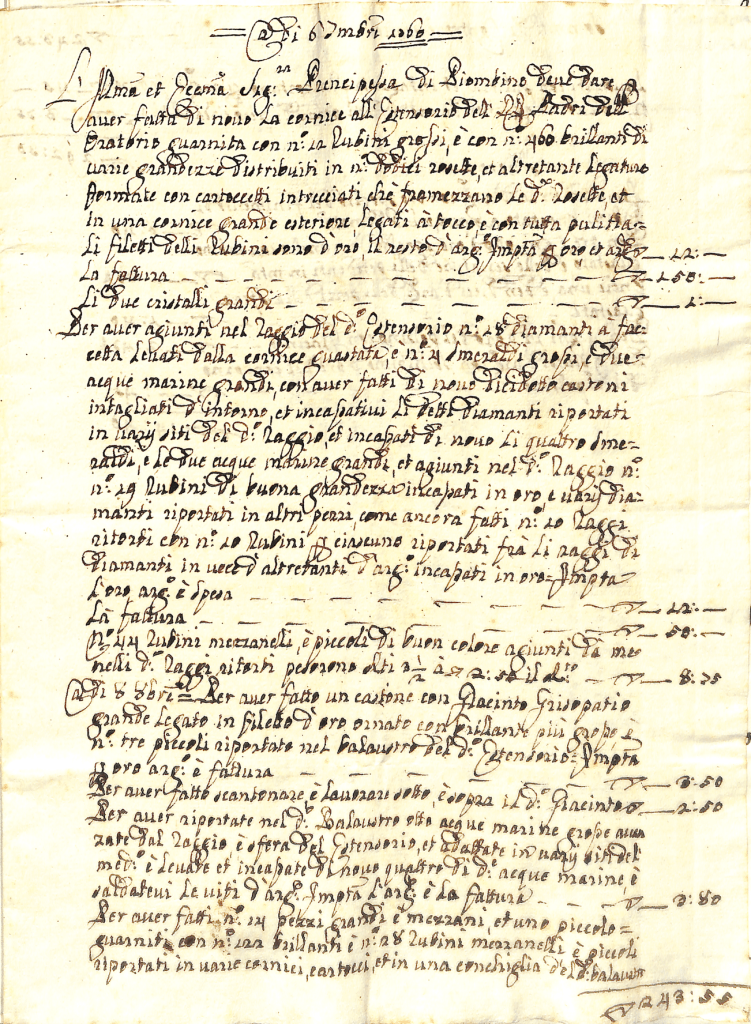 = Adi 6 7mbre 1760 =
L'Illma et Eccma Sigra Principessa di Piombino deve dare
aver fatta di novo la cornice all'Ostensorio delli RR Padri dell
Oratorio guarnita con n.º 12 Rubini grossi, è con n.º 460 brillanti di
varie grandezze distribuiti in n.º dodici rosette, et altretante legature
formate con cartoccetti intrecciati, che framezzano le d.e Rosette, et
in una cornice grande esteriore legati à tocco è con tutta pulitia-
Li filetti delli Rubini sono d'oro, il resto d'arg.º Impta p oro et arg.º — 12: —
La fattura — — — — — 150: —
Li due cristalli grandi — — — — 1: —
Per aver agiunti nel Raggio del d.º Ostensorio n.º 28 diamanti a fac=
cetta levati dalla cornice guastata, è n.º 4 Smeraldi grossi, e due
acque marine grandi, con aver fatti di novo dicidotto castoni
intagliati d'intorno, et incassativi li detti diamanti riportati
in varij siti del d.º Raggio, et incassati di novo li quattro Sme=
raldi, e le due acque marine grandi, et agiunti nel d.º Raggio n.º
n.º 19 Rubini di buona grandezza incassati in oro e varij dia=
manti riportati in altri pezzi, come ancora fatti n.º 10 Raggi
ritorti con n.º 10 Rubini p ciascuno riportati frà li raggi di
diamanti in vece d'altretanti d'arg.º incassati in oro= Impta
l'oro arg.º è spesa — — — — 12: —
La fattura — — — — 50: —
n.º 44 Rubini mezzanelli, è piccoli di buon colore agiunti da me
nelli d.i Raggi ritorti pesorono 3 1/2 à 2:50 il — 8:75
Adi 8 8bre = Per aver fatto un castone con Giacinto Grisopatio
grande legato in filetto d'oro ornato con brillante più grosso è
n.º tre piccoli riportato nel balaustro del d.º Ostensorio= Impta
p oro arg.º è fattura — — — — 3:50
Per aver fatto scantonare, è lavorare sotto, è sopra il d.º Giacinto — 2:50
Per aver riportate nel d.º Balaustro otto acque marine grosse avan
zate dal Raggio è sfera del Ostensorio, et adattate in varij siti del
med.º è levate et incassate di novo quattro di d.e acque marine, è
saldatevi le viti d'arg.º Impta l'arg.º è la fattura — — 3:80
Per aver fatti n.º 14 pezzi grandi è mezzani, et uno piccolo=
guarniti con n.º 122 brillanti è n.º 28 Rubini mezzanelli è piccoli
riportati in varie cornici, cartocci, et in una conchiglia del d.º balaustro
243:55